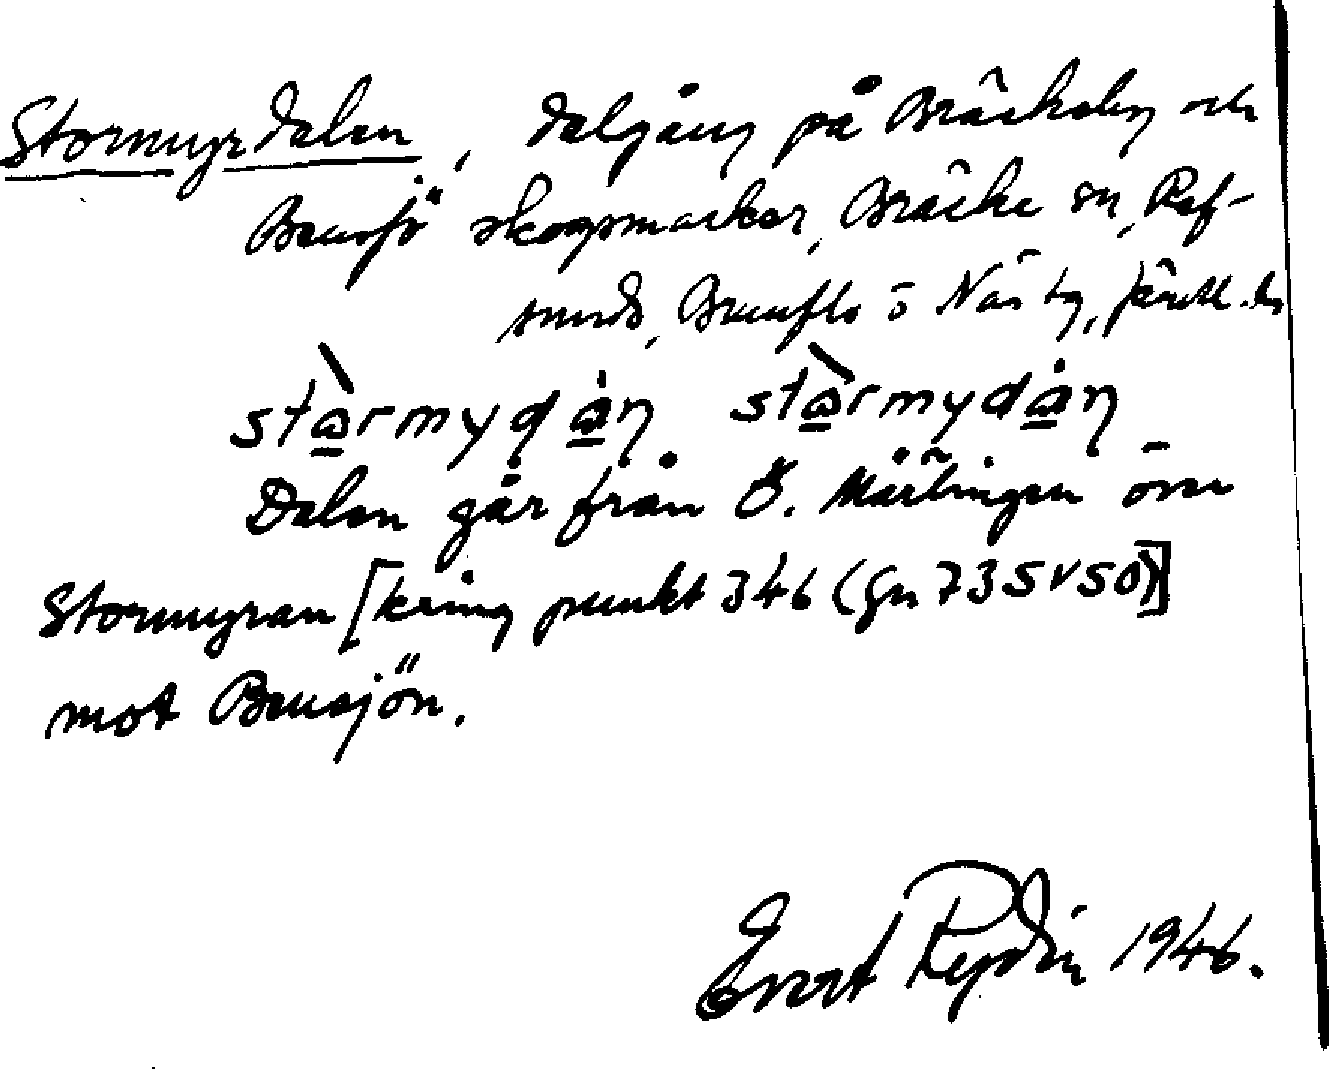 Stormyrdalen, dalgång på Bräckeby och
Bensjö skogsmarker, Bräcke sn, Ref-
sunds, Brunflo o Näs tg, Jämtl. ln
Dalen går från Ö. Mårtingen över
Stormyran [kring punkt 346 (Gn 73SV50)]
mot Bensjön.
Evert Rydin 1946.